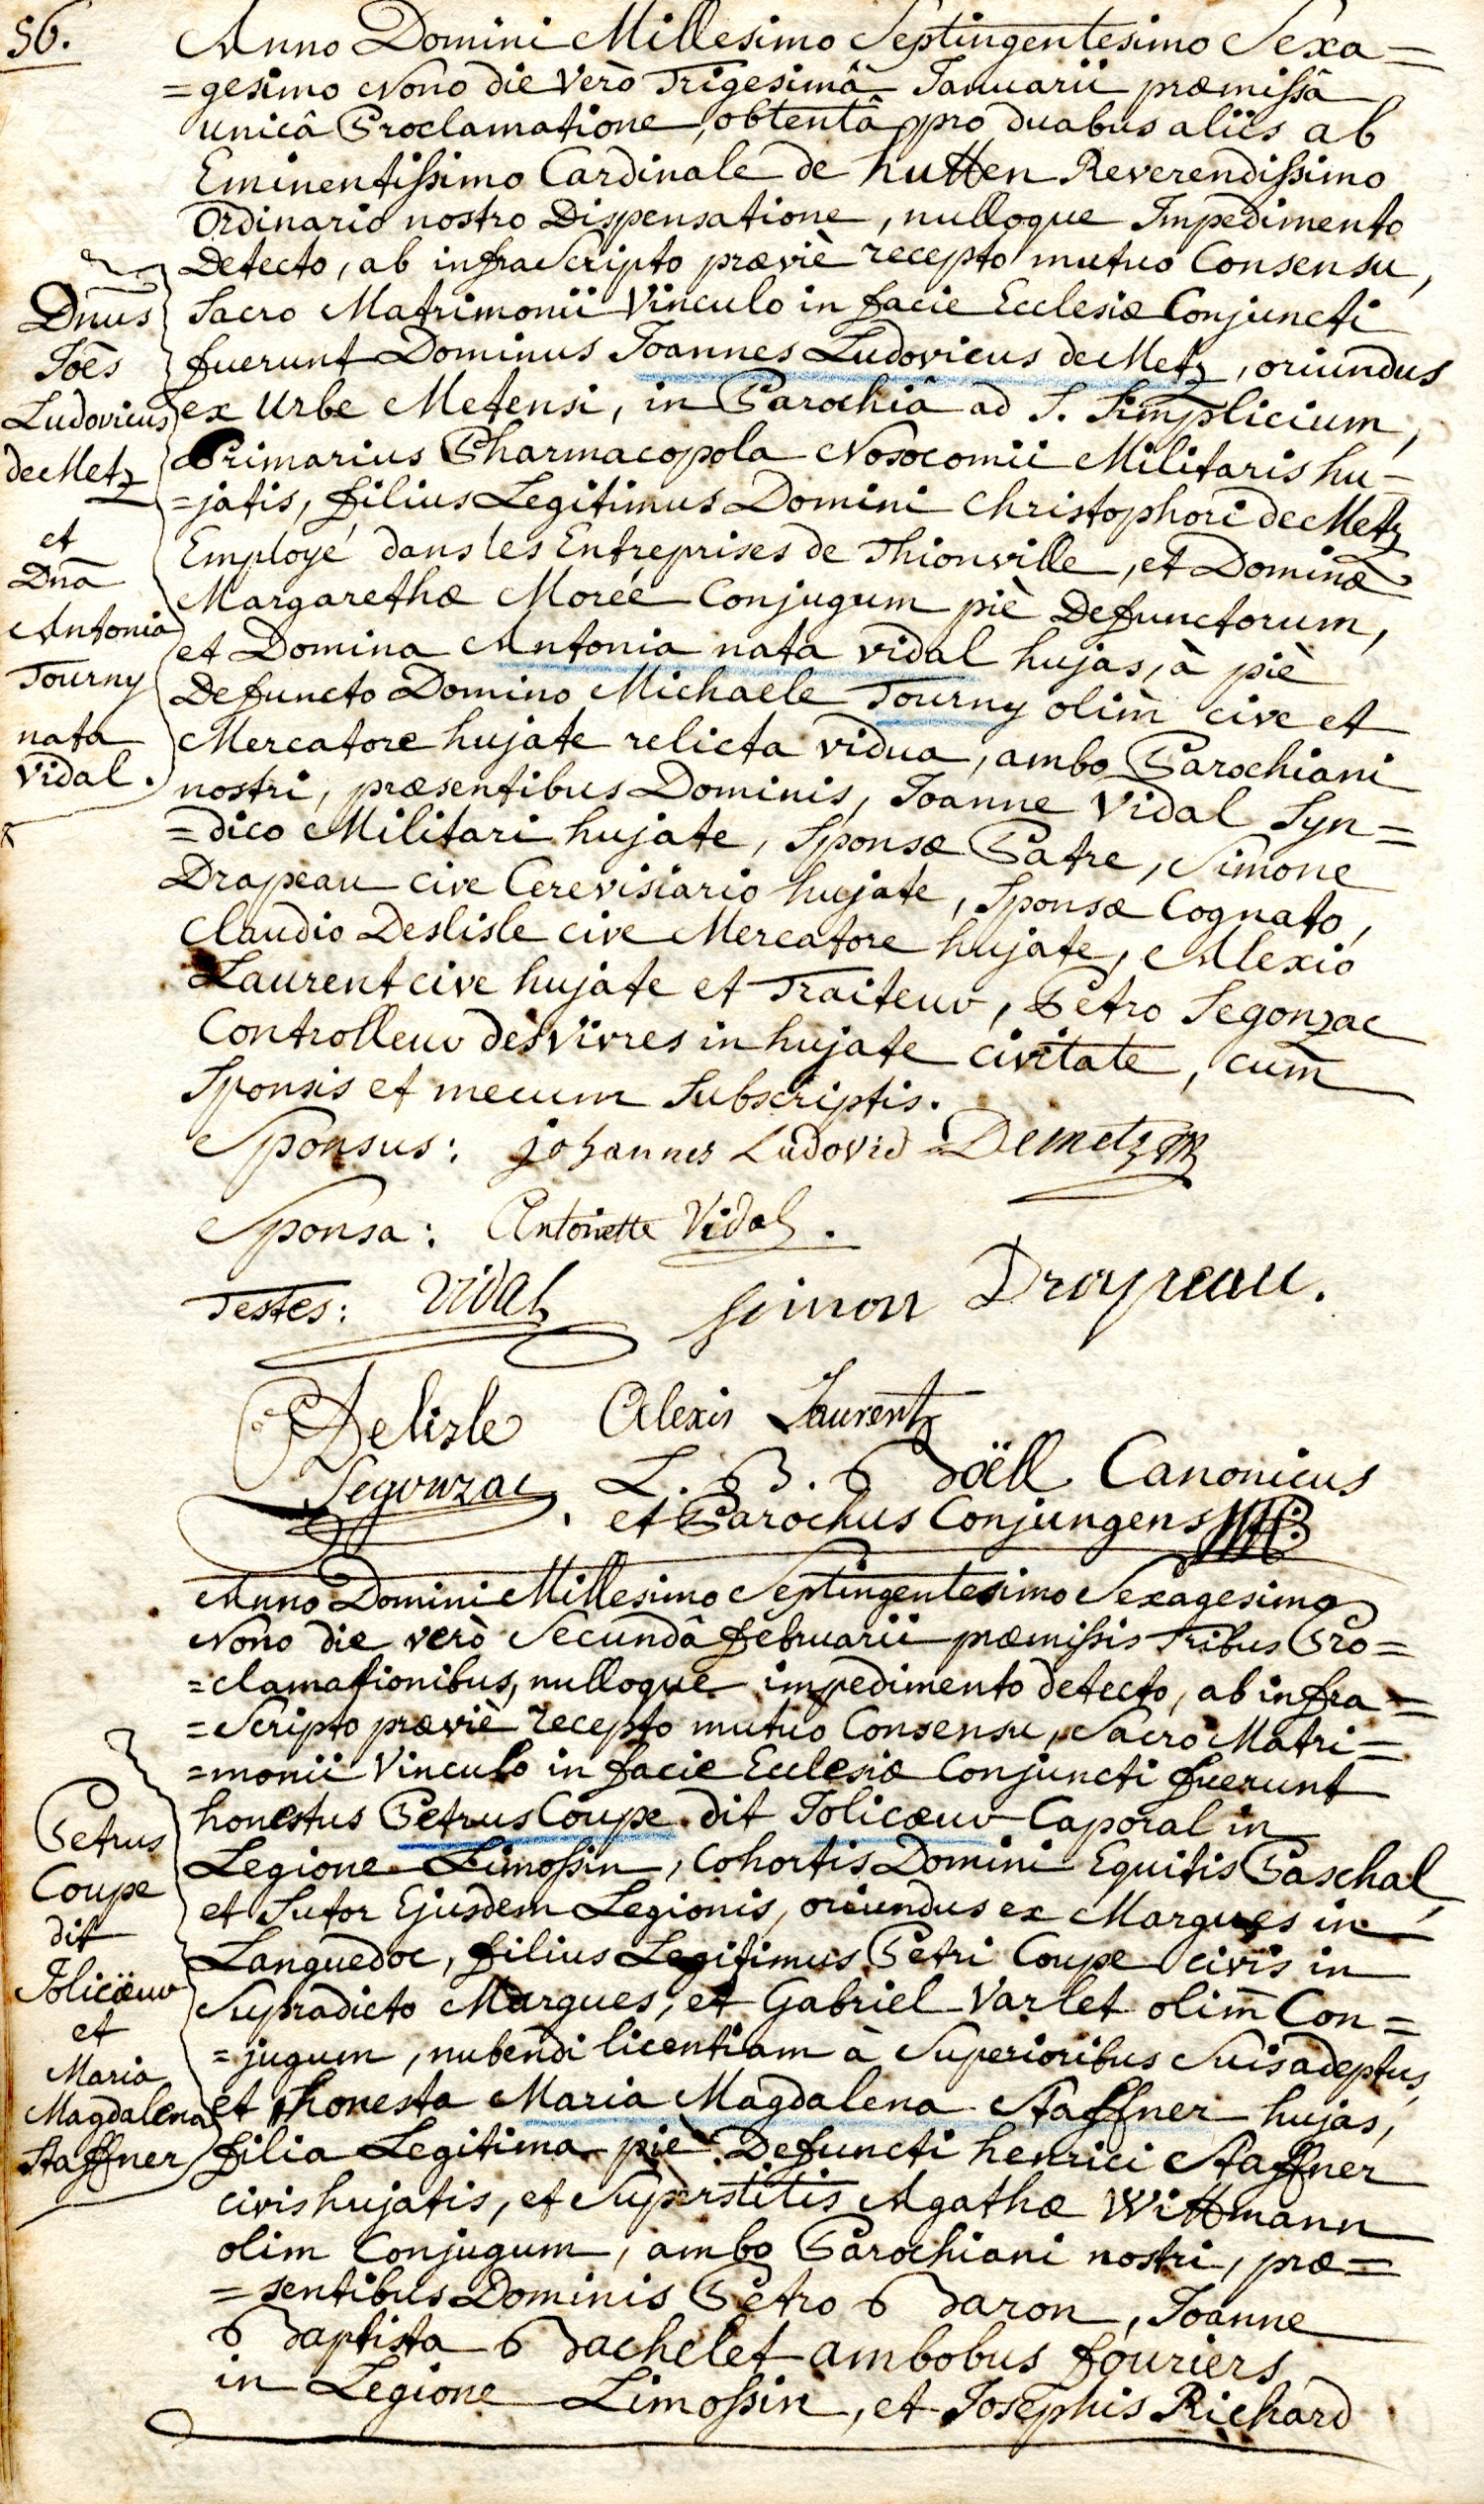 56.
Anno Domini Millesimo Septingentesimo Sexa=
=gesimo Nono die verò Trigesimâ Januarii præmissâ
unicâ Proclamatione, obtentâ pro duabus aliis ab
Eminentissimo Cardinale de hutten Reverendissimo
Ordinario nostro Dispensatione, nulloque Impedimento
Detecto, ab infraScripto præviè recepto mutuo Consensu,
Sacro Matrimonii Vinculo in facie Ecclesiæ Conjuncti
fuerunt Dominus Joannes Ludovicus de Metz, oriundus
ex Urbe Metensi, in Parochiâ ad S. Simplicium,
Primarius Pharmacopola Nosocomii Militaris hu-
=jatis, filius Legitimus Domini Christophori de Metz
Employé dans les Entreprises de Thionville, et Dominæ
Margarethæ Moreé Conjugum piè Defunctorum,
et Domina Antonia nata vidal hujas, à piè
Defuncto Domino Michaele Tourny olim̄ cive et
Mercatore hujate relicta vidua, ambo Parochiani
nostri, præsentibus Dominis, Joanne Vidal Syn=
=dico Militari hujate, Sponsæ Patre, Simone
Drapeau cive Cerevisiario hujate, Sponsæ Cognato,
Claudio Deslisle cive Mercatore hujate, Alexio
Laurent cive hujate et Traiteur, Petro Segonzac
Controlleur des Vivres in hujate civitate, cum̄
Sponsis et mecum Subscriptis.
Dnūs
Joēs
Ludovicus
de Metz
et
Dnā
Antonia
Tourny
nata
Vidal.
Sponsus: johannes Ludovid Demetz
Sponsa: Antoinette Vidal.
Testes: Vidal Simon Drapeau.
Delisle Alexis Laurent
Segonzac. L. B. Böll Canonicus
et Parochus Conjungens
Anno Domini Millesimo Septingentesimo Sexagesimo
Nono die verò Secundâ februarii præmissis Tribus Pro=
=clamationibus, nulloque impedimento detecto, ab infra=
=Scripto præviè recepto mutuo Consensu, Sacro Matri=
=monii Vinculo in facie Ecclesiæ Conjuncti fuerunt
honestus Petrus Coupe dit Jolicœur Caporal in
Legione Limossin, Cohortis Domini Equitis Paschal,
et Sutor Ejusdem Legionis, oriundus ex Margues in
Languedoc, filius Legitimus Petri Coupe civis in
Supradicto Margues, et Gabriel Varlet olim̄ Con=
=jugum, nubendi licentiam à Superioribus Suis adeptus,
et honesta Maria Magdalena Staffner hujas,
filia Legitima piè Defuncti henrici Staffner
civis hujatis, et Superstitis Agathæ Wittmann
olim Conjugum, ambo Parochiani nostri, præ=
=sentibus Dominis Petro Baron, Joanne
Baptista Bachelet ambobus fouriers
in Legione Limossin, et Josephis Richard
Petrus
Coupe
dit
Jolicœur
et
Maria
Magdalena
Staffner